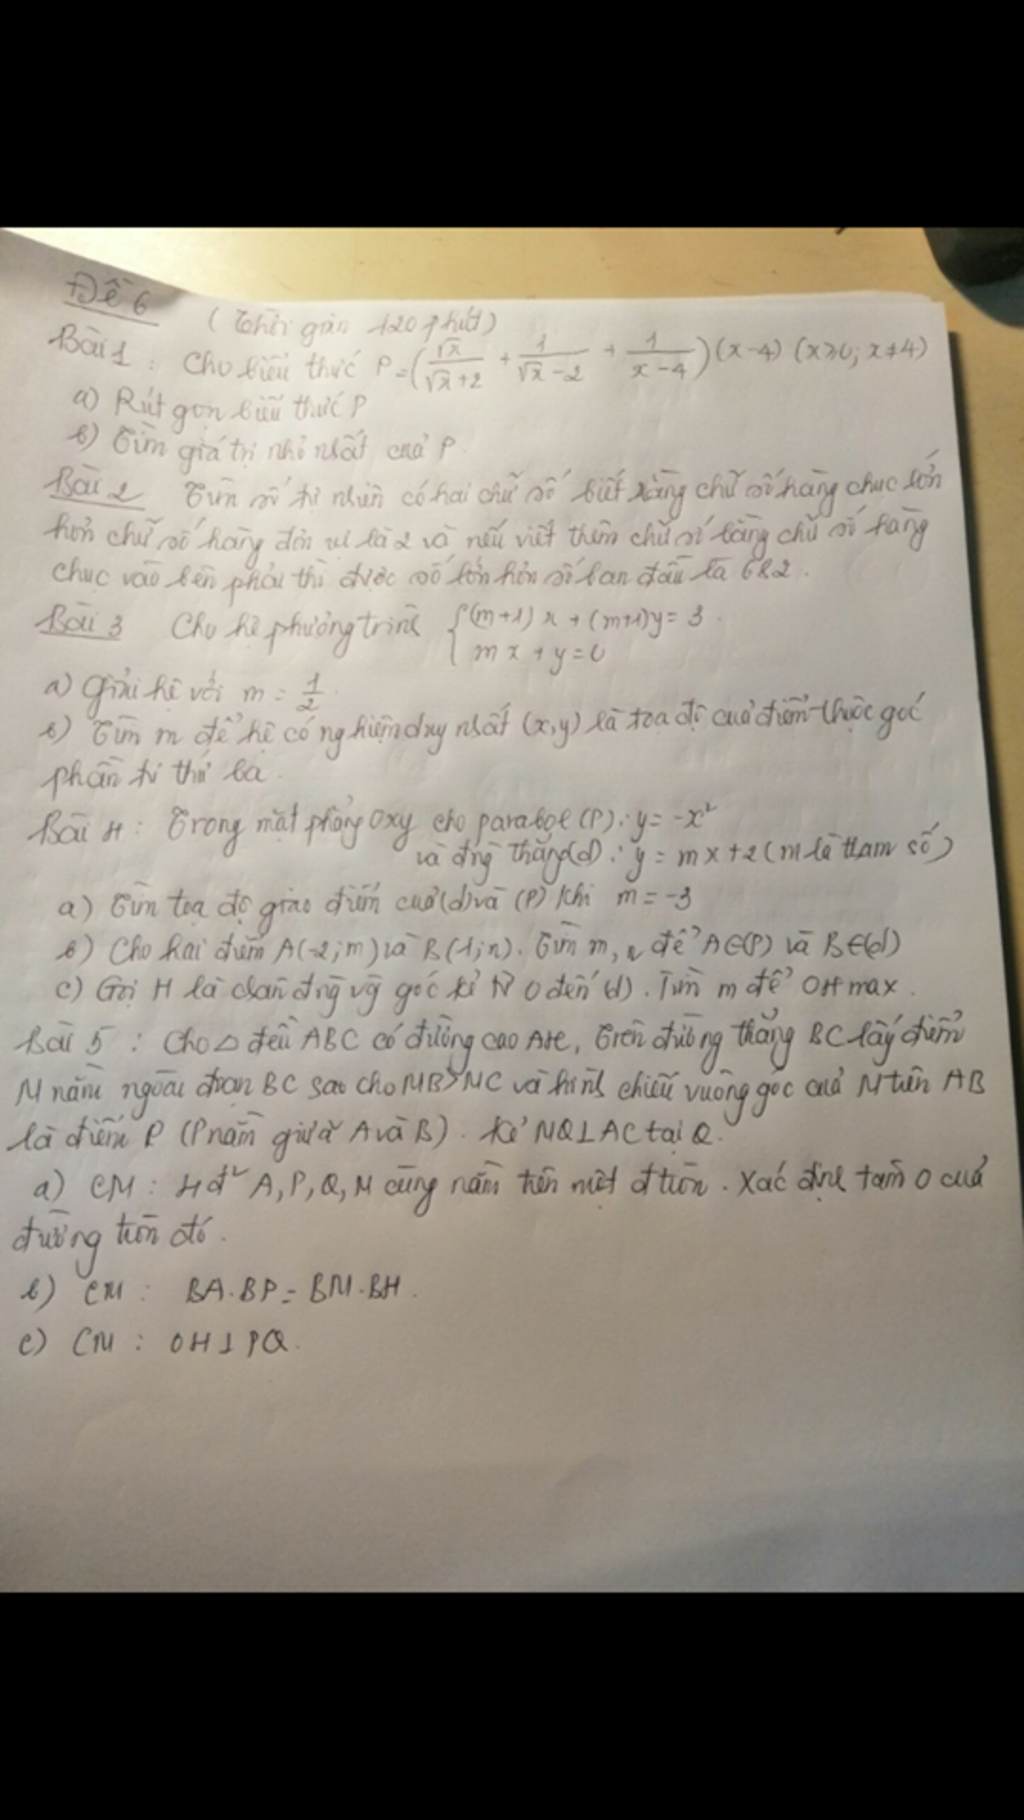 Đề 6
(Thời gian 120 phút)
Bài 1: Cho biểu thức P=(√x/(√x+2) + 1/(√x-2) + 1/(x-4))(x-4) (x≥0; x≠4)
a) Rút gọn biểu thức P
b) Tìm giá trị nhỏ nhất của P.
Bài 2 Tìm số tự nhiên có hai chữ số biết rằng chữ số hàng chục lớn
hơn chữ số hàng đơn vị là 2 và nếu viết thêm chữ số bằng chữ số hàng
chục vào bên phải thì được số lớn hơn số ban đầu là 682.
Bài 3 Cho hệ phương trình {(m+1)x+(m+1)y=3
mx+y=0
a) Giải hệ với m = 1/2.
b) Tìm m để hệ có nghiệm duy nhất (x,y) là toạ độ của điểm thuộc góc
phần tư thứ ba.
Bài 4: Trong mặt phẳng Oxy cho parabol (P): y=-x²
và đng thẳng(d): y = mx+2 (m là tham số)
a) Tìm tọa độ giao điểm của (d) và (P) khi m = -3
b) Cho hai điểm A(-2;m) và B(1;n). Tìm m, n để A∈(P) và B∈(d)
c) Gọi H là chân đng vg góc kẻ từ O đến (d). Tìm m để OH max.
Bài 5: Cho Δ đều ABC có đường cao AH, trên đường thẳng BC lấy điểm
M nằm ngoài đoạn BC sao cho MB>MC và hình chiếu vuông góc của M trên AB
là điểm P (P nằm giữa A và B). Kẻ MQ⊥AC tại Q.
a) CM: 4 đ² A,P,Q,M cùng nằm trên một đ tròn. Xác định tâm O của
đường tròn đó.
b) CM: BA.BP=BM.BH.
c) CM: OH⊥PQ.